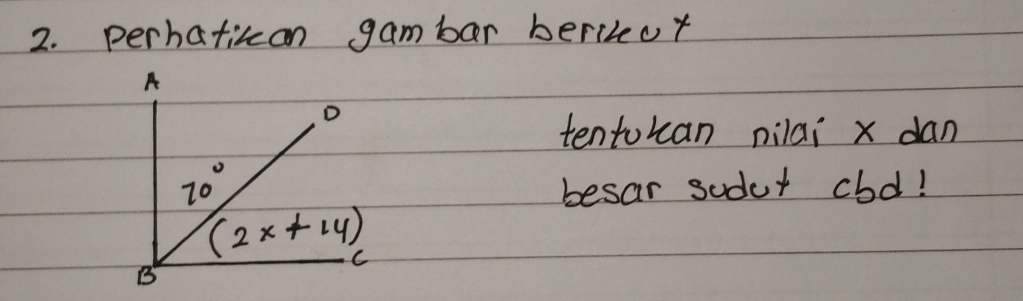 2. perhatikan gambar berikut
A
D
tentukan nilai x dan
70°
besar sudut cbd!
(2x+14)
C
B